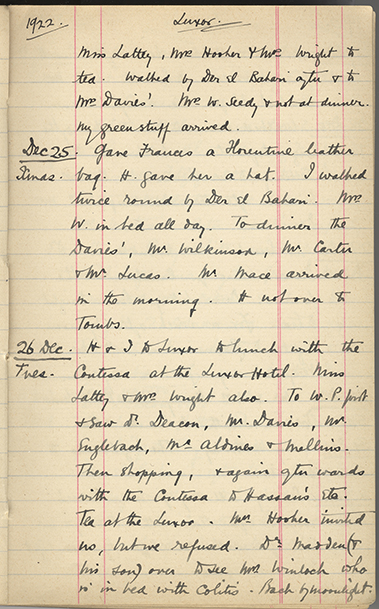 1922. Luxor.
Miss Lattey, Mrs Hosher & Mrs Wright to
tea. Walked by Der el Bahari after & to
Mrs Davies'. Mrs W. seedy & not at dinner.
My green stuff arrived.
Dec 25. Gave Frances a Florentine leather
Xmas. bag. H. gave her a hat. I walked
twice round by Der el Bahari. Mrs
W. in bed all day. To dinner the
Davies', Mr Wilkinson, Mr Carter
& Mr Lucas. Mr Mace arrived
in the morning. H not over to
Tombs.
26 Dec. H & I to Luxor to lunch with the
Tues. Contessa at the Luxor Hotel. Miss
Lattey & Mrs Wright also. To W.P. first
& saw Dr Deacon, Mr Davies, Mr
Englebach, & Mellinis.
Then shopping, & again afterwards
with the Contessa to Hassan's etc.
Tea at the Luxor. Mrs Hosher invited
us, but we refused. Dr Madden (&
his son) over to see Mrs Winlock who
is in bed with Colitis. Back by moonlight.